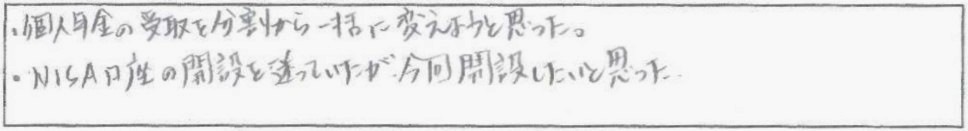 ・個人年金の受取を分割から一括に変えようと思った。
・NISA口座の開設を迷っていたが、今回開設したいと思った